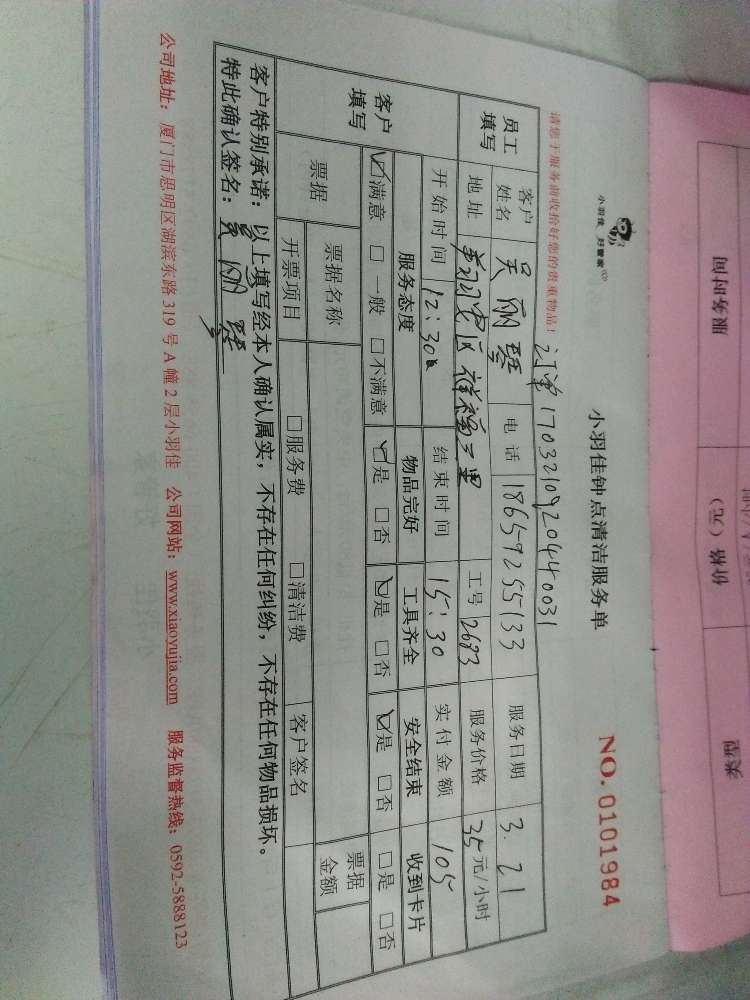 小羽佳 好管家
小羽佳钟点清洁服务单
NO.0101984
请您于服务前收拾好您的贵重物品！
订单1703210920440031
员工填写
客户姓名 吴丽琴 电话 18659255133 服务日期 3.21
地址 翔安区祥福三里 工号 2693 服务价格 35元/小时
开始时间 12:30 结束时间 15:30 实付金额 105
客户填写
服务态度 物品完好 工具齐全 安全结束 收到卡片
☑满意 □一般 □不满意 ☑是 □否 ☑是 □否 ☑是 □否 □是 □否
票据 票据名称 票据金额
开票项目 □服务费 □清洁费 客户签名
客户特别承诺：以上填写经本人确认属实，不存在任何纠纷，不存在任何物品损坏。
特此确认签名：吴丽琴
公司地址：厦门市思明区湖滨东路319号A幢2层小羽佳 公司网站：www.xiaoyujia.com 服务监督热线：0592-5888123
服务时间
价格（元）